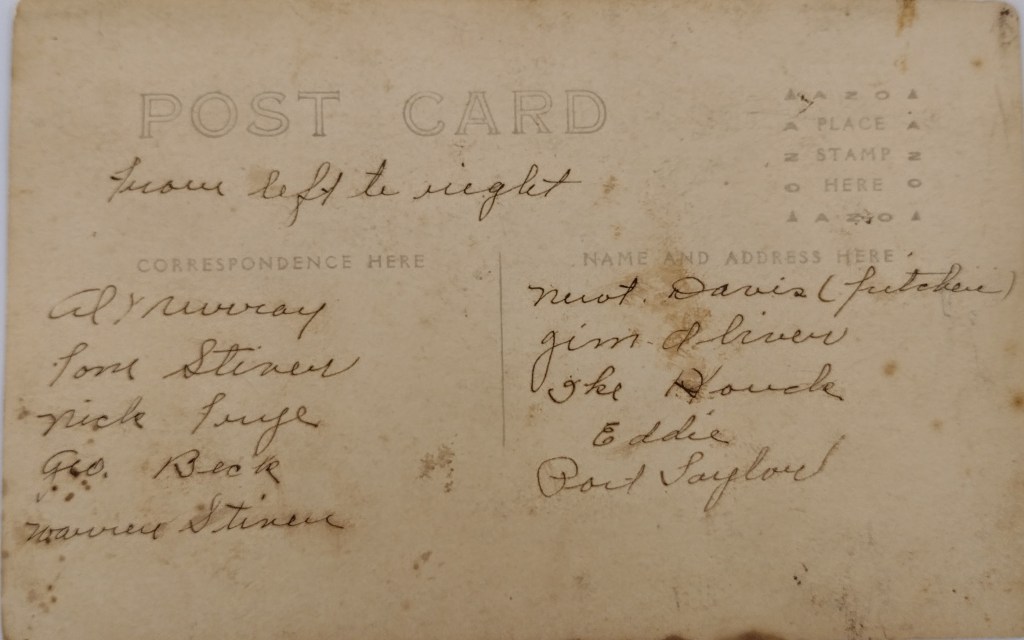 POST CARD
AZO
PLACE
STAMP
HERE
AZO
From left to right
CORRESPONDENCE HERE
Al Murray
Tom Stiver
Nick
Geo. Beck
Warren Stiver
NAME AND ADDRESS HERE
Newt. Davis (
Jim Oliver
Ike Houck
Eddie
Taylor